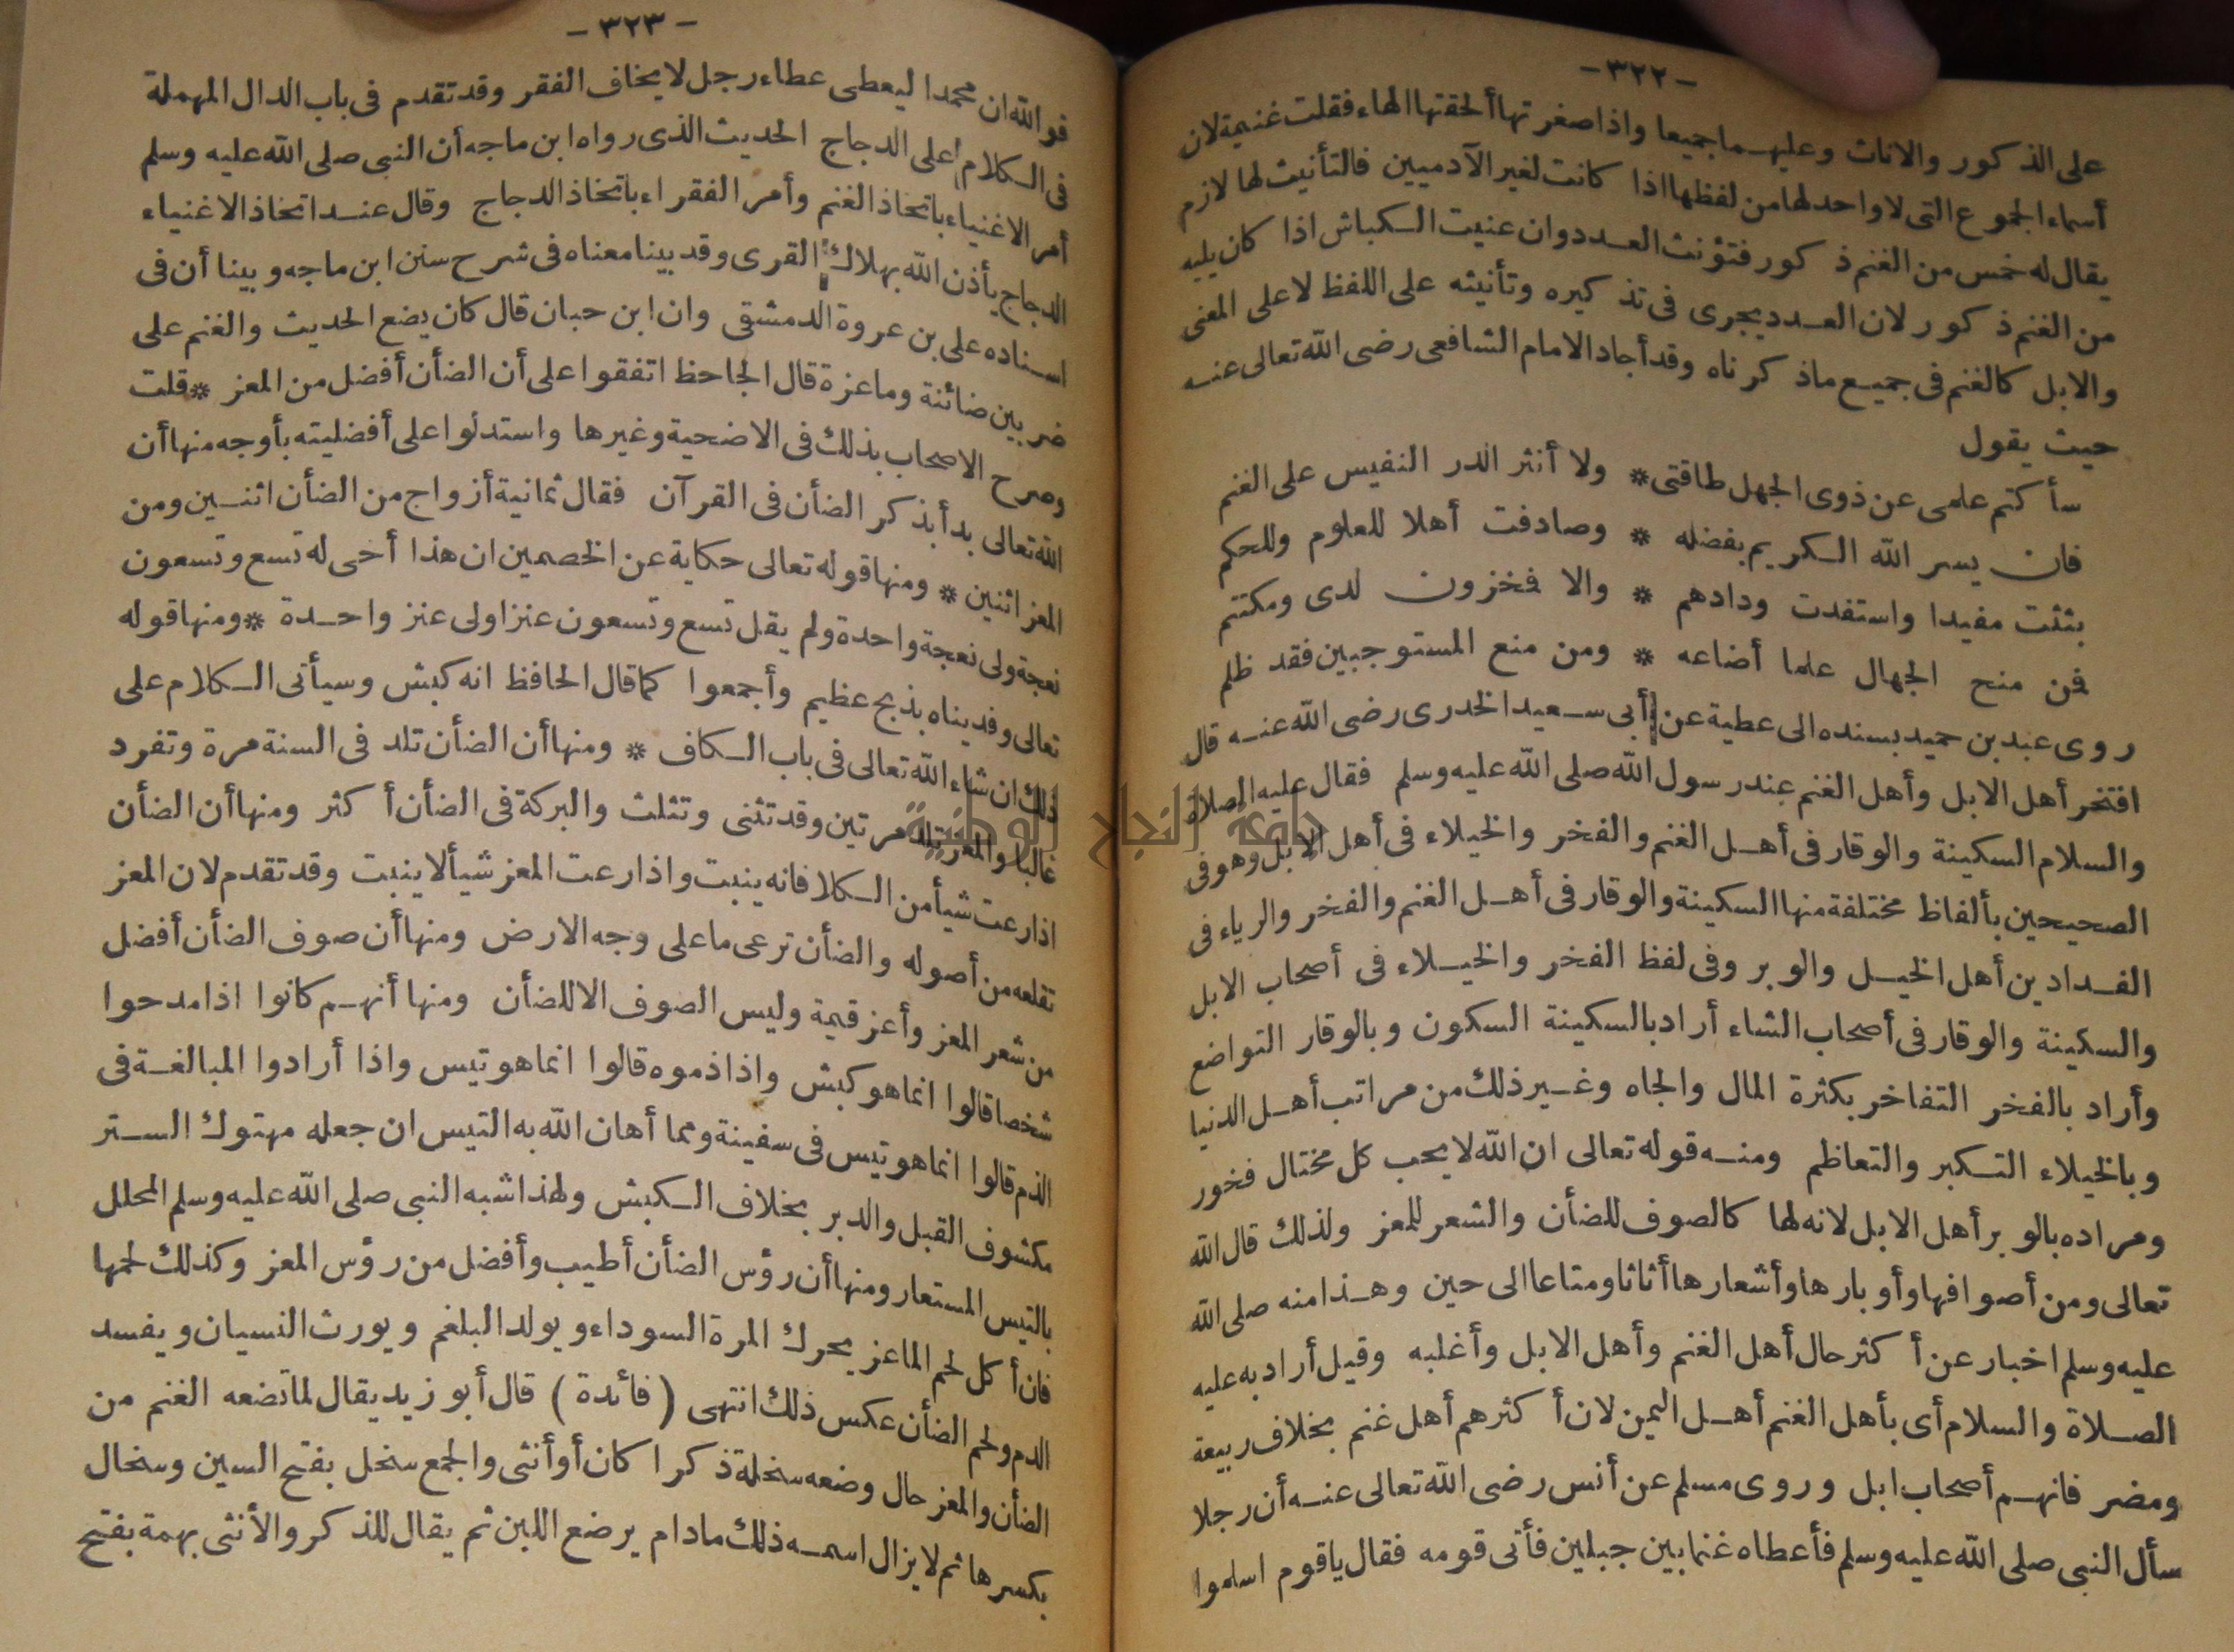 -٣٢٢-
على الذكور والاناث وعليهما جميعا واذا صغرتها ألحقتها الهاء فقلت غنيمة لان
أسماء الجموع التى لا واحد لها من لفظها اذا كانت لغير الآدميين فالتأنيث لها لازم
يقال له خمس من الغنم ذكور فتؤنث العدد وان عنيت الكباش اذا كان يليه
من الغنم ذكور لان العدد يجرى فى تذكيره وتأنيثه على اللفظ لا على المعنى
والابل كالغنم فى جميع ماذكرناه وقد أجاد الامام الشافعى رضى الله تعالى عنه
حيث يقول
سأكتم علمى عن ذوى الجهل طاقتى * ولا أنثر الدر النفيس على الغنم
فان يسر الله الكريم بفضله * وصادفت أهلا للعلوم وللحكم
بثثت مفيدا واستفدت ودادهم * والا فمخزون لدى ومكتتم
فمن منح الجهال علما أضاعه * ومن منع المستوجبين فقد ظلم
روى عبد بن حميد بسنده الى عطية عن أبى سعيد الخدرى رضى الله عنه قال
افتخر أهل الابل وأهل الغنم عند رسول الله صلى الله عليه وسلم فقال عليه الصلاة
والسلام السكينة والوقار فى أهل الغنم والفخر والخيلاء فى أهل الابل وهو فى
الصحيحين بألفاظ مختلفة منها السكينة والوقار فى أهل الغنم والفخر والرياء فى
الفدادين أهل الخيل والوبر وفى لفظ الفخر والخيلاء فى أصحاب الابل
والسكينة والوقار فى أصحاب الشاء أراد بالسكينة السكون وبالوقار التواضع
وأراد بالفخر التفاخر بكثرة المال والجاه وغير ذلك من مراتب أهل الدنيا
وبالخيلاء التكبر والتعاظم ومنه قوله تعالى ان الله لا يحب كل مختال فخور
ومراده بالوبر أهل الابل لانه لها كالصوف للضأن والشعر للمعز ولذلك قال الله
تعالى ومن أصوافها وأوبارها وأشعارها أثاثا ومتاعا الى حين وهذا منه صلى الله
عليه وسلم اخبار عن أكثر حال أهل الغنم وأهل الابل وأغلبه وقيل أراد به عليه
الصلاة والسلام أى بأهل الغنم أهل اليمن لان أكثرهم أهل غنم بخلاف ربيعة
ومضر فانهم أصحاب ابل وروى مسلم عن أنس رضى الله تعالى عنه أن رجلا
سأل النبى صلى الله عليه وسلم فأعطاه غنما بين جبلين فأتى قومه فقال ياقوم اسلموا
-٣٢٣-
فو الله ان محمدا ليعطى عطاء رجل لا يخاف الفقر وقد تقدم فى باب الدال المهملة
فى الكلام على الدجاج الحديث الذى رواه ابن ماجه أن النبى صلى الله عليه وسلم
أمر الاغنياء باتخاذ الغنم وأمر الفقراء باتخاذ الدجاج وقال عند اتخاذ الاغنياء
الدجاج يأذن الله بهلاك القرى وقد بينا معناه فى شرح سنن ابن ماجه وبينا أن فى
اسناده على بن عروة الدمشقى وان ابن حبان قال كان يضع الحديث والغنم على
ضربين ضائنة وماعزة قال الجاحظ اتفقوا على أن الضأن أفضل من المعز * قلت
وصرح الاصحاب بذلك فى الاضحية وغيرها واستدلوا على أفضليته بأوجه منها أن
الله تعالى بدأ بذكر الضأن فى القرآن فقال ثمانية أزواج من الضأن اثنين ومن
المعز اثنين * ومنها قوله تعالى حكاية عن الخصمين ان هذا أخى له تسع وتسعون
نعجة ولى نعجة واحدة ولم يقل تسع وتسعون عنزا ولى عنز واحدة * ومنها قوله
تعالى وفديناه بذبح عظيم وأجمعوا كما قال الحافظ انه كبش وسيأتى الكلام على
ذلك ان شاء الله تعالى فى باب الكاف * ومنها أن الضأن تلد فى السنة مرة وتفرد
غالبا والمعز تلد مرتين وقد تثنى وتثلث والبركة فى الضأن أكثر ومنها أن الضأن
اذا رعت شيأ من الكلا فانه ينبت واذا رعت المعز شيأ لا ينبت وقد تقدم لان المعز
تقلعه من أصوله والضأن ترعى ما على وجه الارض ومنها أن صوف الضأن أفضل
من شعر المعز وأعز قيمة وليس الصوف الا للضأن ومنها أنهم كانوا اذا مدحوا
شخصا قالوا انما هو كبش واذا ذموه قالوا انما هو تيس واذا أرادوا المبالغة فى
الذم قالوا انما هو تيس فى سفينة ومما أهان الله به التيس ان جعله مهتوك الستر
مكشوف القبل والدبر بخلاف الكبش ولهذا شبه النبى صلى الله عليه وسلم المحلل
بالتيس المستعار ومنها أن رؤس الضأن أطيب وأفضل من رؤس المعز وكذلك لحمها
فان أكل لحم الماعز يحرك المرة السوداء ويولد البلغم ويورث النسيان ويفسد
الدم ولحم الضأن عكس ذلك انتهى (فائدة) قال أبو زيد يقال لما تضعه الغنم من
الضأن والمعز حال وضعه سخلة ذكرا كان أو أنثى والجمع سخل بفتح السين وسخال
بكسرها ثم لا يزال اسمه ذلك مادام يرضع اللبن ثم يقال للذكر والأنثى بهمة بفتح
جامعة النجاح الوطنية